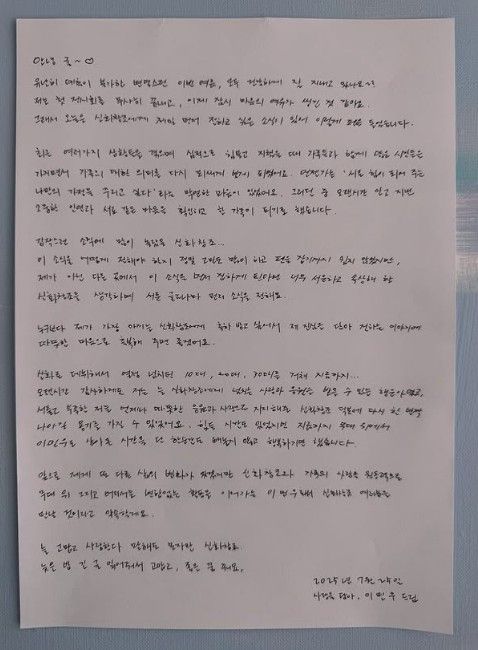 안녕 귤~♡
유난히 더운 이번 여름, 모두 건강하게 잘 지내고 있나요~?
저는 첫 전시회를 무사히 끝내고, 이제 잠시 마음의 여유가 생긴 것 같아요.
그래서 오늘은 신화창조에게 제일 먼저 전하고 싶은 소식이 있어 이렇게 펜을 들었습니다.
최근 여러가지 상황들을 겪으며 심적으로 힘들고 지쳤을 때 가족들과 함께 많은 시간들을
가지면서 가족의 대한 의미를 다시 되새기게 됐어요. 언젠가는 '서로 힘이 되어 주는
나만의 가정을 꾸리고 싶다'라는 막연한 마음이 있었어요. 그러던 중 오랜시간 알고 지낸
소중한 인연과 서로 같은 마음을 확인하고 한 가족이 되기로 했습니다.
갑작스런 소식에 많이 놀랐을 신화창조...
이 소식을 어떻게 전해야 하지 정말 고민도 많이 하고 펜을 잡기까지 쉽지 않았지만,
제가 아닌 다른 곳에서 이 소식을 먼저 접하게 된다면 너무 서운하고 속상해 할
신화창조를 생각하며 서툰 글로나마 먼저 소식을 전해요.
누구보다 제가 가장 아끼는 신화창조에게 축하 받고 싶어서 제 진심을 담아 전하는 이야기에
따뜻한 마음으로 축복해 주면 좋겠어요..
신화로 데뷔해서 열정 넘치던 10대, 20대, 30대를 거쳐 지금까지...
오랜시간 감사하게도 저는 늘 신화창조에게 넘치는 사랑과 응원을 받을 수 있는 행운아였고,
서툴고 부족한 저를 언제나 따뜻한 응원과 사랑으로 지지해주는 신화창조 덕분에 다시 한 번
나아갈 용기를 가질 수 있었어요. 힘든 시간도 있었지만 지금까지 무대 위에서
이민우로 살아온 시간을 단 한순간도 빼놓지 않고 행복하기만 했습니다.
앞으로 제게 또 다른 삶의 변화가 있겠지만 신화창조와 가족의 사랑을 원동력으로
무대 위 그리고 어디서든 변함없는 활동을 이어가는 이민우로써 신화창조 여러분을
만날 것이라고 약속할게요..
늘 고맙고 사랑한다 말해도 모자란 신화창조.
늦은 밤 긴 글 읽어줘서 고맙고, 좋은 꿈 꿔요.
2025년 7월 25일
사랑을 담아, 이민우 드림